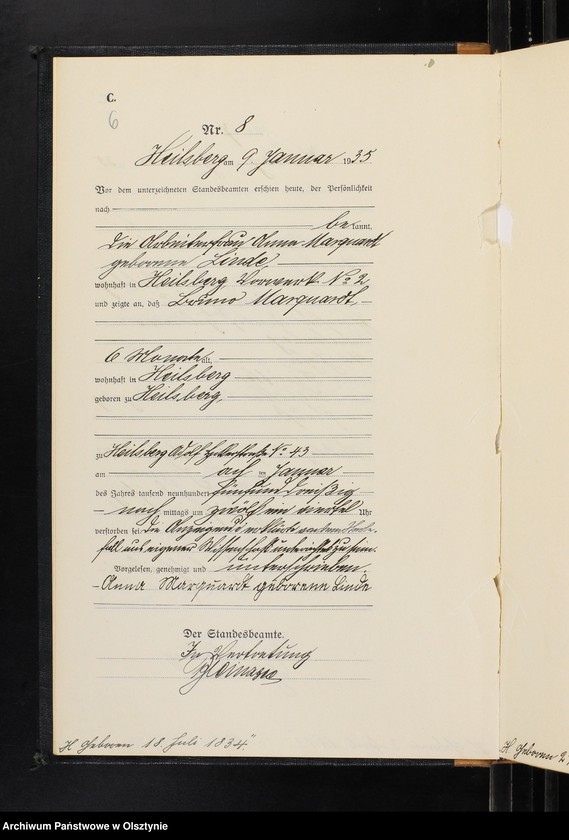 C.
6
Nr. 8
Heilsberg am 9 Januar 1935
Vor dem unterzeichneten Standesbeamten erschien heute, der Persönlichkeit
nach
be kannt,
die Arbeiterfrau Anna Marquardt
geborene Linde,
wohnhaft in Heilsberg Vorwerk No 2
und zeigte an, daß Bruno Marquardt,
6 Monate alt,
wohnhaft in Heilsberg
geboren zu Heilsberg,
zu Heilsberg Adolf Hitlerstraße No 43
am acht ten Januar
des Jahres tausend neunhundert fünfunddreißig
nach mittags um zwölf ein viertel Uhr
verstorben sei. Die Anzeigende erklärte von dem Sterbe-
fall aus eigener Wissenschaft unterrichtet zu sein.
Vorgelesen, genehmigt und unterschrieben.
Anna Marquardt geborene Linde
Der Standesbeamte.
In Vertretung
H. Geboren 18. Juli 1934
H. Geboren 2
Archiwum Państwowe w Olsztynie